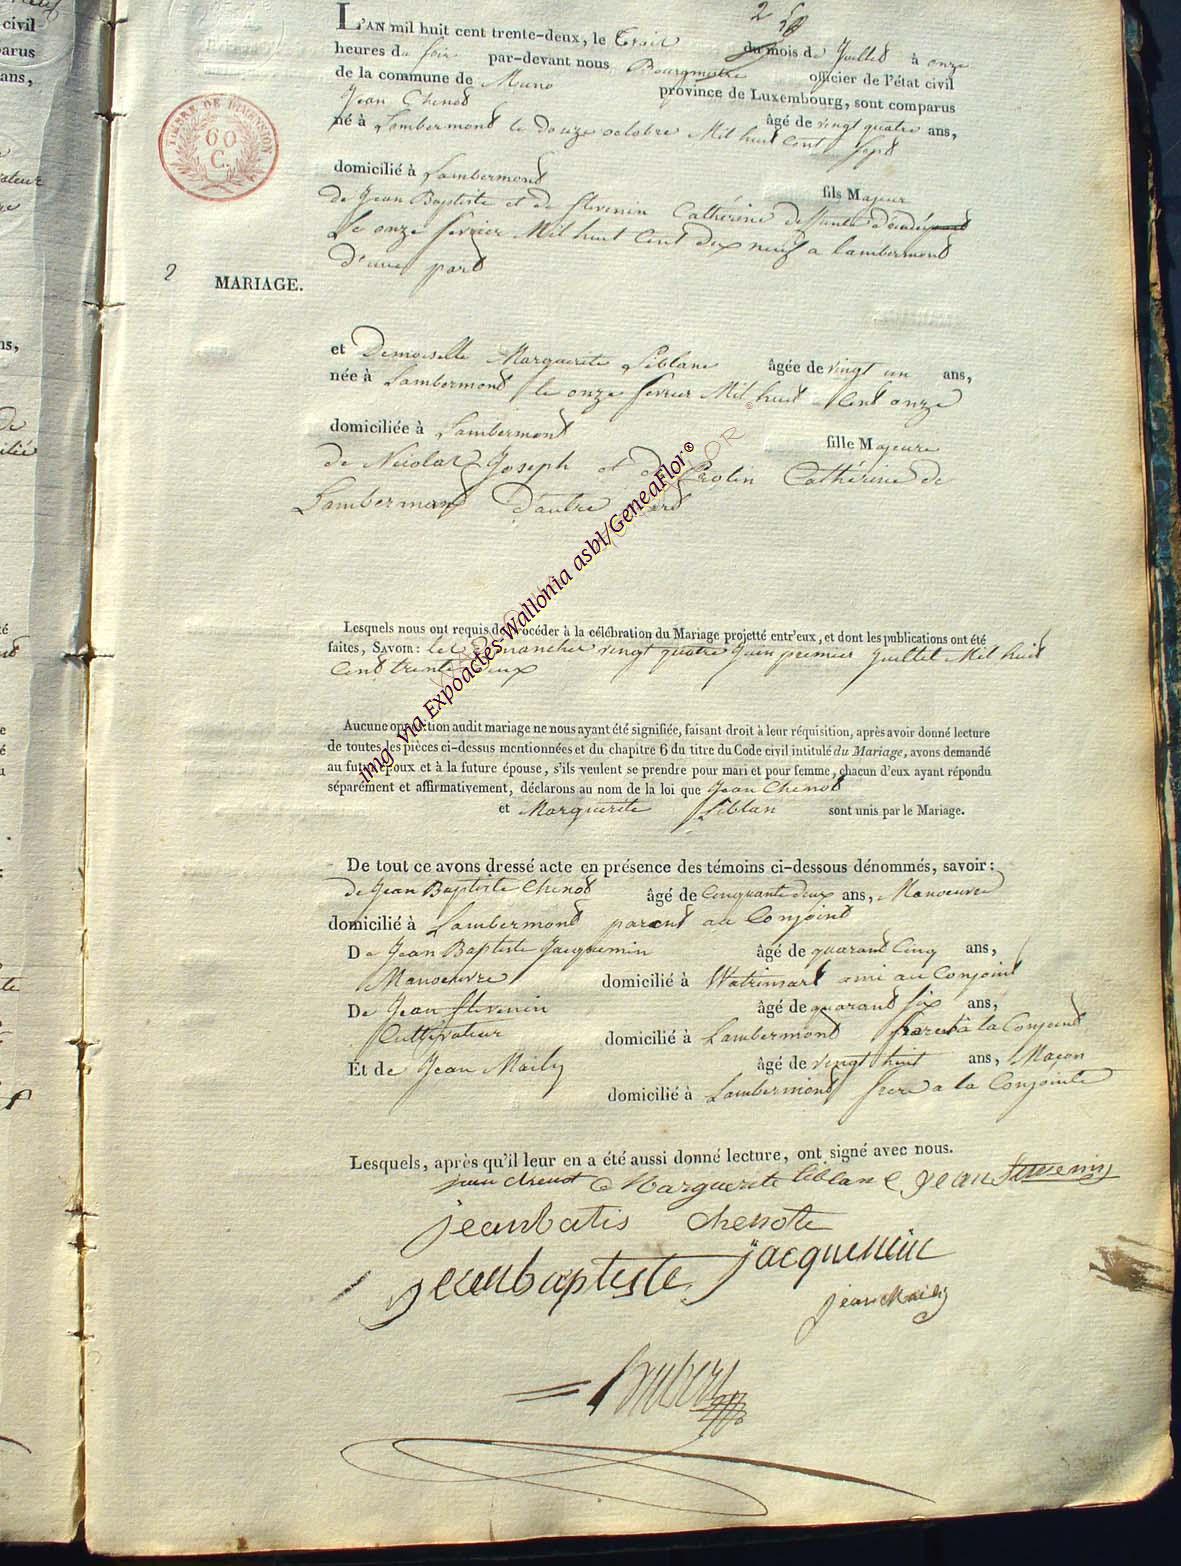 civil
parus
ans,
2
L'AN mil huit cent trente-deux, le trois du mois de Juillet à onze
heures du soir par-devant nous Bourgmestre officier de l'état civil
de la commune de Muno province de Luxembourg, sont comparus
Jean Chenot âgé de vingt quatre ans,
né à Lambermont le douze octobre Mil huit Cent sept
domicilié à Lambermont fils Majeur
de Jean Baptiste et de Stevenin Cathérine deffunte décédé
Le onze fevrier Mil huit Cent dix neuf a lambermont
d'une part
TIMBRE DE DIMENSION
60
C.
2 MARIAGE.
et Demoiselle Marguerite Leblanc âgée de vingt un ans,
née à Lambermont le onze fevrier Mil huit Cent onze
domiciliée à Lambermont fille Majeure
de Nicolas Joseph et de Protin Cathérine de
Lambermont d'autre part
Lesquels nous ont requis de procéder à la célébration du Mariage projetté entr'eux, et dont les publications ont été
faites, SAVOIR: les Dimanches vingt quatre Juin premier Juillet Mil huit
Cent trente deux
Aucune opposition audit mariage ne nous ayant été signifiée, faisant droit à leur réquisition, après avoir donné lecture
de toutes les pièces ci-dessus mentionnées et du chapitre 6 du titre du Code civil intitulé du Mariage, avons demandé
au futur époux et à la future épouse, s'ils veulent se prendre pour mari et pour femme, chacun d'eux ayant répondu
séparément et affirmativement, déclarons au nom de la loi que Jean Chenot
et Marguerite Leblan sont unis par le Mariage.
De tout ce avons dressé acte en présence des témoins ci-dessous dénommés, savoir:
de Jean Baptiste Chenot âgé de Cinquante deux ans, Manoeuvre
domicilié à Lambermont parent au Conjoint
De Jean Baptiste Jacquemin âgé de quarant Cinq ans,
Manoeuvre domicilié à Watrinsart ami au Conjoint
De Jean Stevenin âgé de quarant six ans,
Cultivateur domicilié à Lambermont à la Conjoint
Et de Jean Maily âgé de vingt huit ans, Maçon
domicilié à Lambermont frere a la Conjointe
Lesquels, après qu'il leur en a été aussi donné lecture, ont signé avec nous.
jean chenot Marguerite leblanc jean stevenin
jeanbatis chenote
jeanbaptiste jacquemin
jean Maily
img via Expoactes-Wallonia asbl/GeneaFlor®